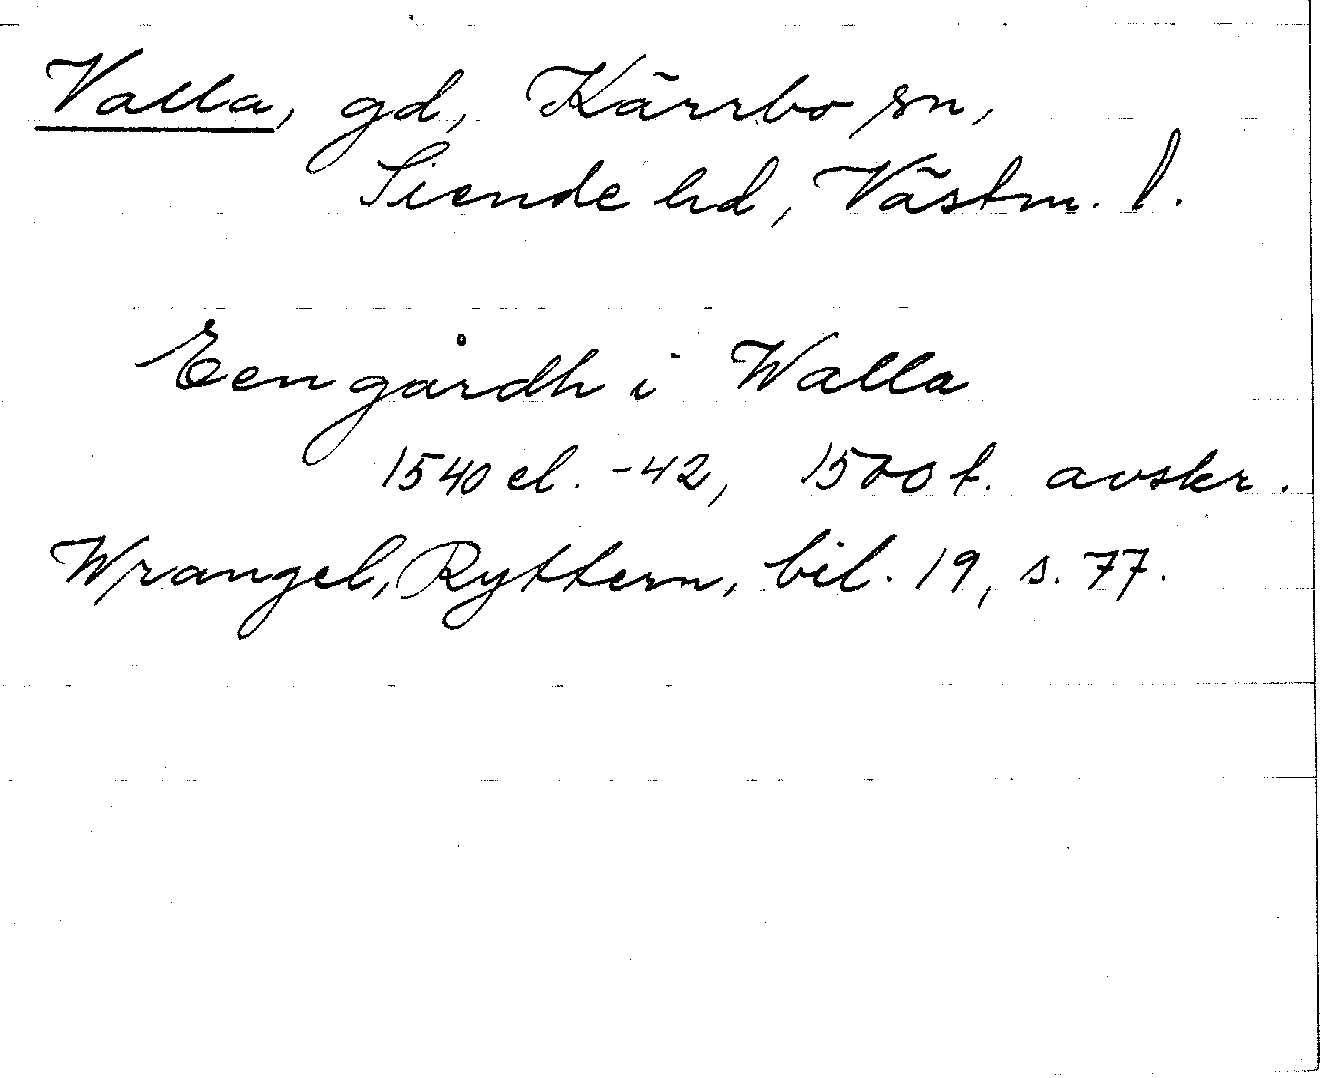 Valla, gd, Kärrbo sn,
Siende hd, Västm. l.
Een gårdh i Walla
1540 el. -42, 1500 t. avskr.
Wrangel, Ryttern, bil. 19, s. 77.